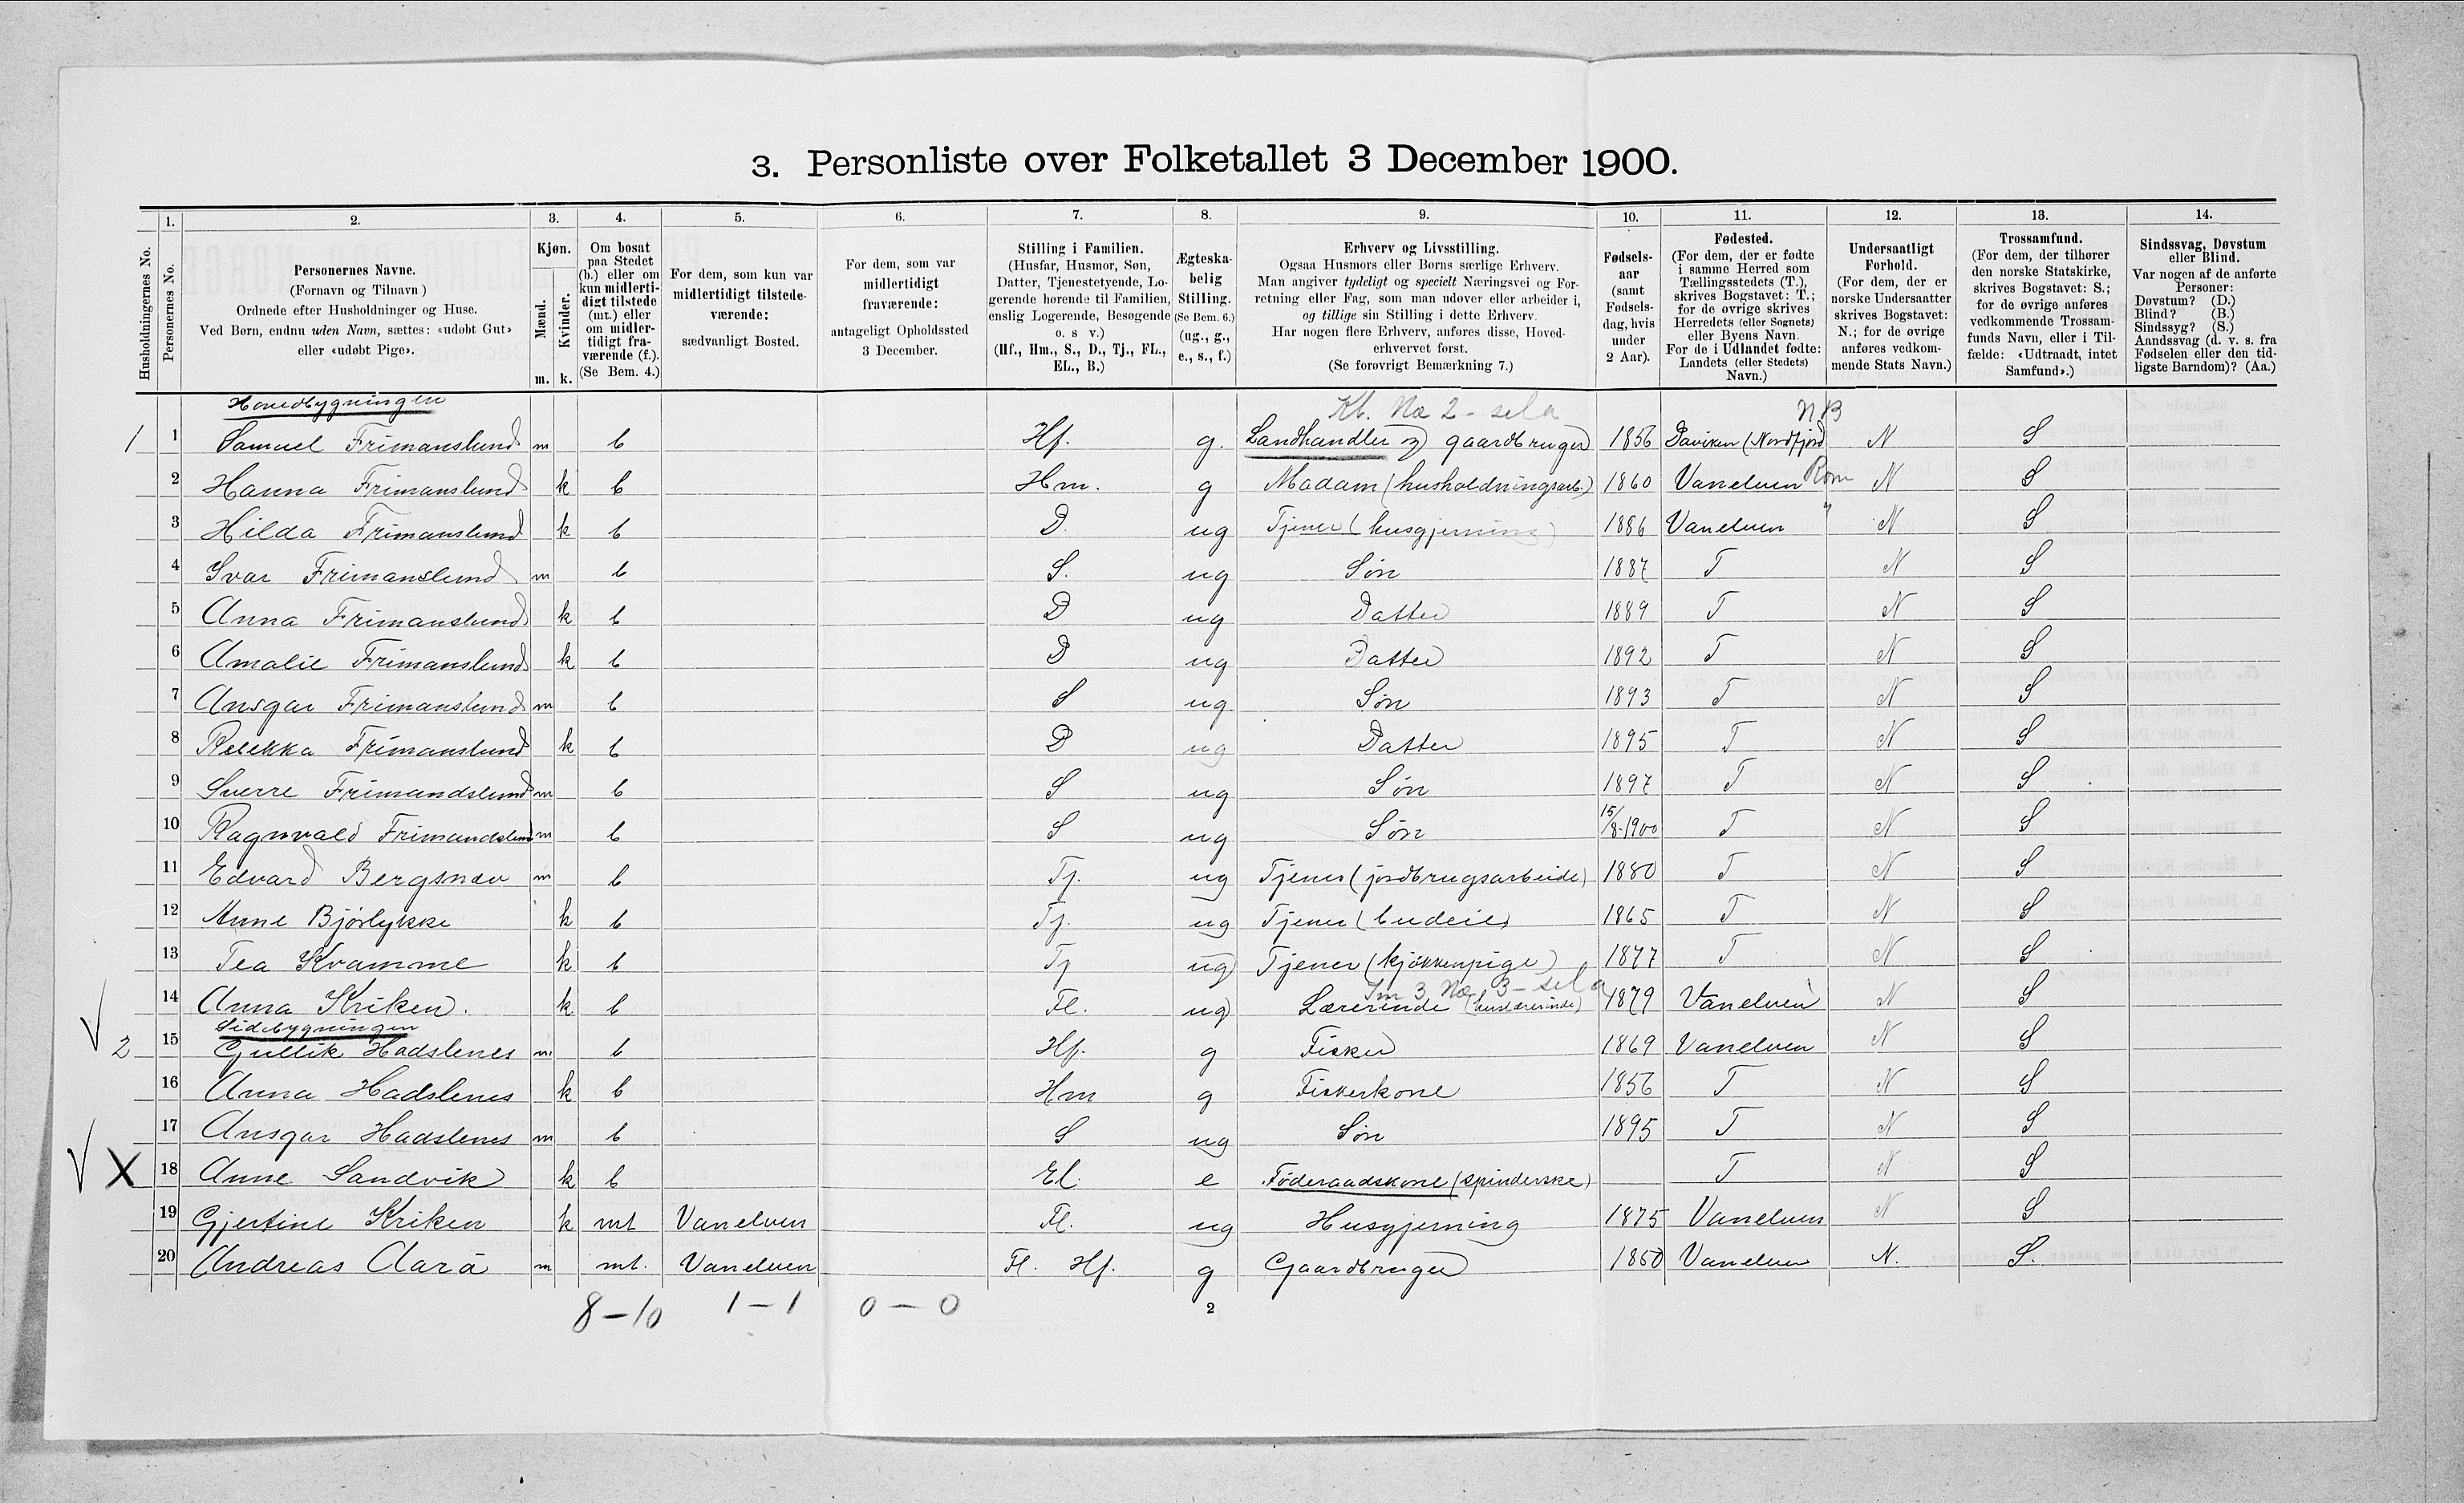 3. Personliste over Folketallet 3 December 1900.
1. 2. 3. 4. 5. 6. 7. 8. 9. 10. 11. 12. 13. 14.
Husholdningernes No.
Personernes No.
Personernes Navne.
(Fornavn og Tilnavn)
Ordnede efter Husholdninger og Huse.
Ved Børn, endnu uden Navn, sættes: «udøbt Gut»
eller «udøbt Pige».
Kjøn.
Mænd. Kvinder.
m. k.
Om bosat
paa Stedet
(b.) eller om
kun midlerti-
digt tilstede
(mt.) eller
om midler-
tidigt fra-
værende (f.).
(Se Bem. 4.)
For dem, som kun var
midlertidigt tilstede-
værende:
sædvanligt Bosted.
For dem, som var
midlertidigt
fraværende:
antageligt Opholdssted
3 December.
Stilling i Familien.
(Husfar, Husmor, Søn,
Datter, Tjenestetyende, Lo-
gerende hørende til Familien,
enslig Logerende, Besøgende
o. s v.)
(Hf., Hm., S., D., Tj., FL.,
EL., B.)
Ægteska-
belig
Stilling.
(Se Bem. 6.)
(ug., g.,
e., s., f.)
Erhverv og Livsstilling.
Ogsaa Husmors eller Børns særlige Erhverv.
Man angiver tydeligt og specielt Næringsvei og For-
retning eller Fag, som man udøver eller arbeider i,
og tillige sin Stilling i dette Erhverv.
Har nogen flere Erhverv, anføres disse, Hoved-
erhvervet først.
(Se forøvrigt Bemærkning 7.)
Fødsels-
aar
(samt
Fødsels-
dag, hvis
under
2 Aar).
Fødested.
(For dem, der er fødte
i samme Herred som
Tællingsstedets (T.),
skrives Bogstavet: T.;
for de øvrige skrives
Herredets (eller Sognets)
eller Byens Navn.
For de i Udlandet fødte:
Landets (eller Stedets)
Navn.)
Undersaatligt
Forhold.
(For dem, der er
norske Undersaatter
skrives Bogstavet:
N.; for de øvrige
anføres vedkom-
mende Stats Navn.)
Trossamfund.
(For dem, der tilhører
den norske Statskirke,
skrives Bogstavet: S.;
for de øvrige anføres
vedkommende Trossam-
funds Navn, eller i Til-
fælde: «Udtraadt, intet
Samfund».)
Sindssvag, Døvstum
eller Blind.
Var nogen af de anførte
Personer:
Døvstum? (D.)
Blind? (B.)
Sindssyg? (S.)
Aandssvag (d. v. s. fra
Fødselen eller den tid-
ligste Barndom)? (Aa.)
Hovedbygningen Kb. Næ 2 - sela NB
1 1 Samuel Frimanslund m b Hf. g. Landhandler og gaardbruger 1856 Daviken (Nordfjord N S
2 Hanna Frimanslund k b Hm. g Madam (husholdningsarb.) 1860 Vanelven Rom N S
3 Hilda Frimanslund k b D. ug Tjener (husgjerning) 1886 Vanelven " N S
4 Ivar Frimanslund m b S. ug Søn 1887 T N S
5 Anna Frimanslund k b D ug Datter 1889 T N S
6 Amalie Frimanslund k b D ug Datter 1892 T N S
7 Ansgar Frimanslund m b S ug Søn 1893 T N S
8 Rebekka Frimanslund k b D ug Datter 1895 T N S
9 Sverre Frimandslund m b S ug Søn 1897 T N S
10 Ragnvald Frimandslund m b S ug Søn 15/8-1900 T N S
11 Edvard Bergsnev m b Tj. ug Tjener (jordbrugsarbeide) 1880 T N S
12 Anne Bjørlykke k b Tj. ug Tjener (budeie) 1865 T N S
13 Tea Kvamme k b Tj ug Tjener (kjøkkenpige) 1877 T N S
Im 3 Næ 3 - sela
14 Anna Kriken. k b Fl. ug Lærerinde (huslærerinde) 1879 Vanelven N S
Sidebygningen
2 15 Gullik Hadslenes m b Hf. g Fisker 1869 Vanelven N S
16 Anna Hadslenes k b Hm g Fiskerkone 1856 T N S
17 Ansgar Hadslenes m b S ug Søn 1895 T N S
X 18 Anne Sandvik k b El. e Føderaadskone (spinderske) T N S
19 Gjertine Kriken k mt Vanelven Fl. ug Husgjerning 1875 Vanelven N S
20 Andreas Aarå m mt. Vanelven Fl. Hf. g Gaardbruger 1850 Vanelven N. S.
8 - 10 1 - 1 0 - 0 2